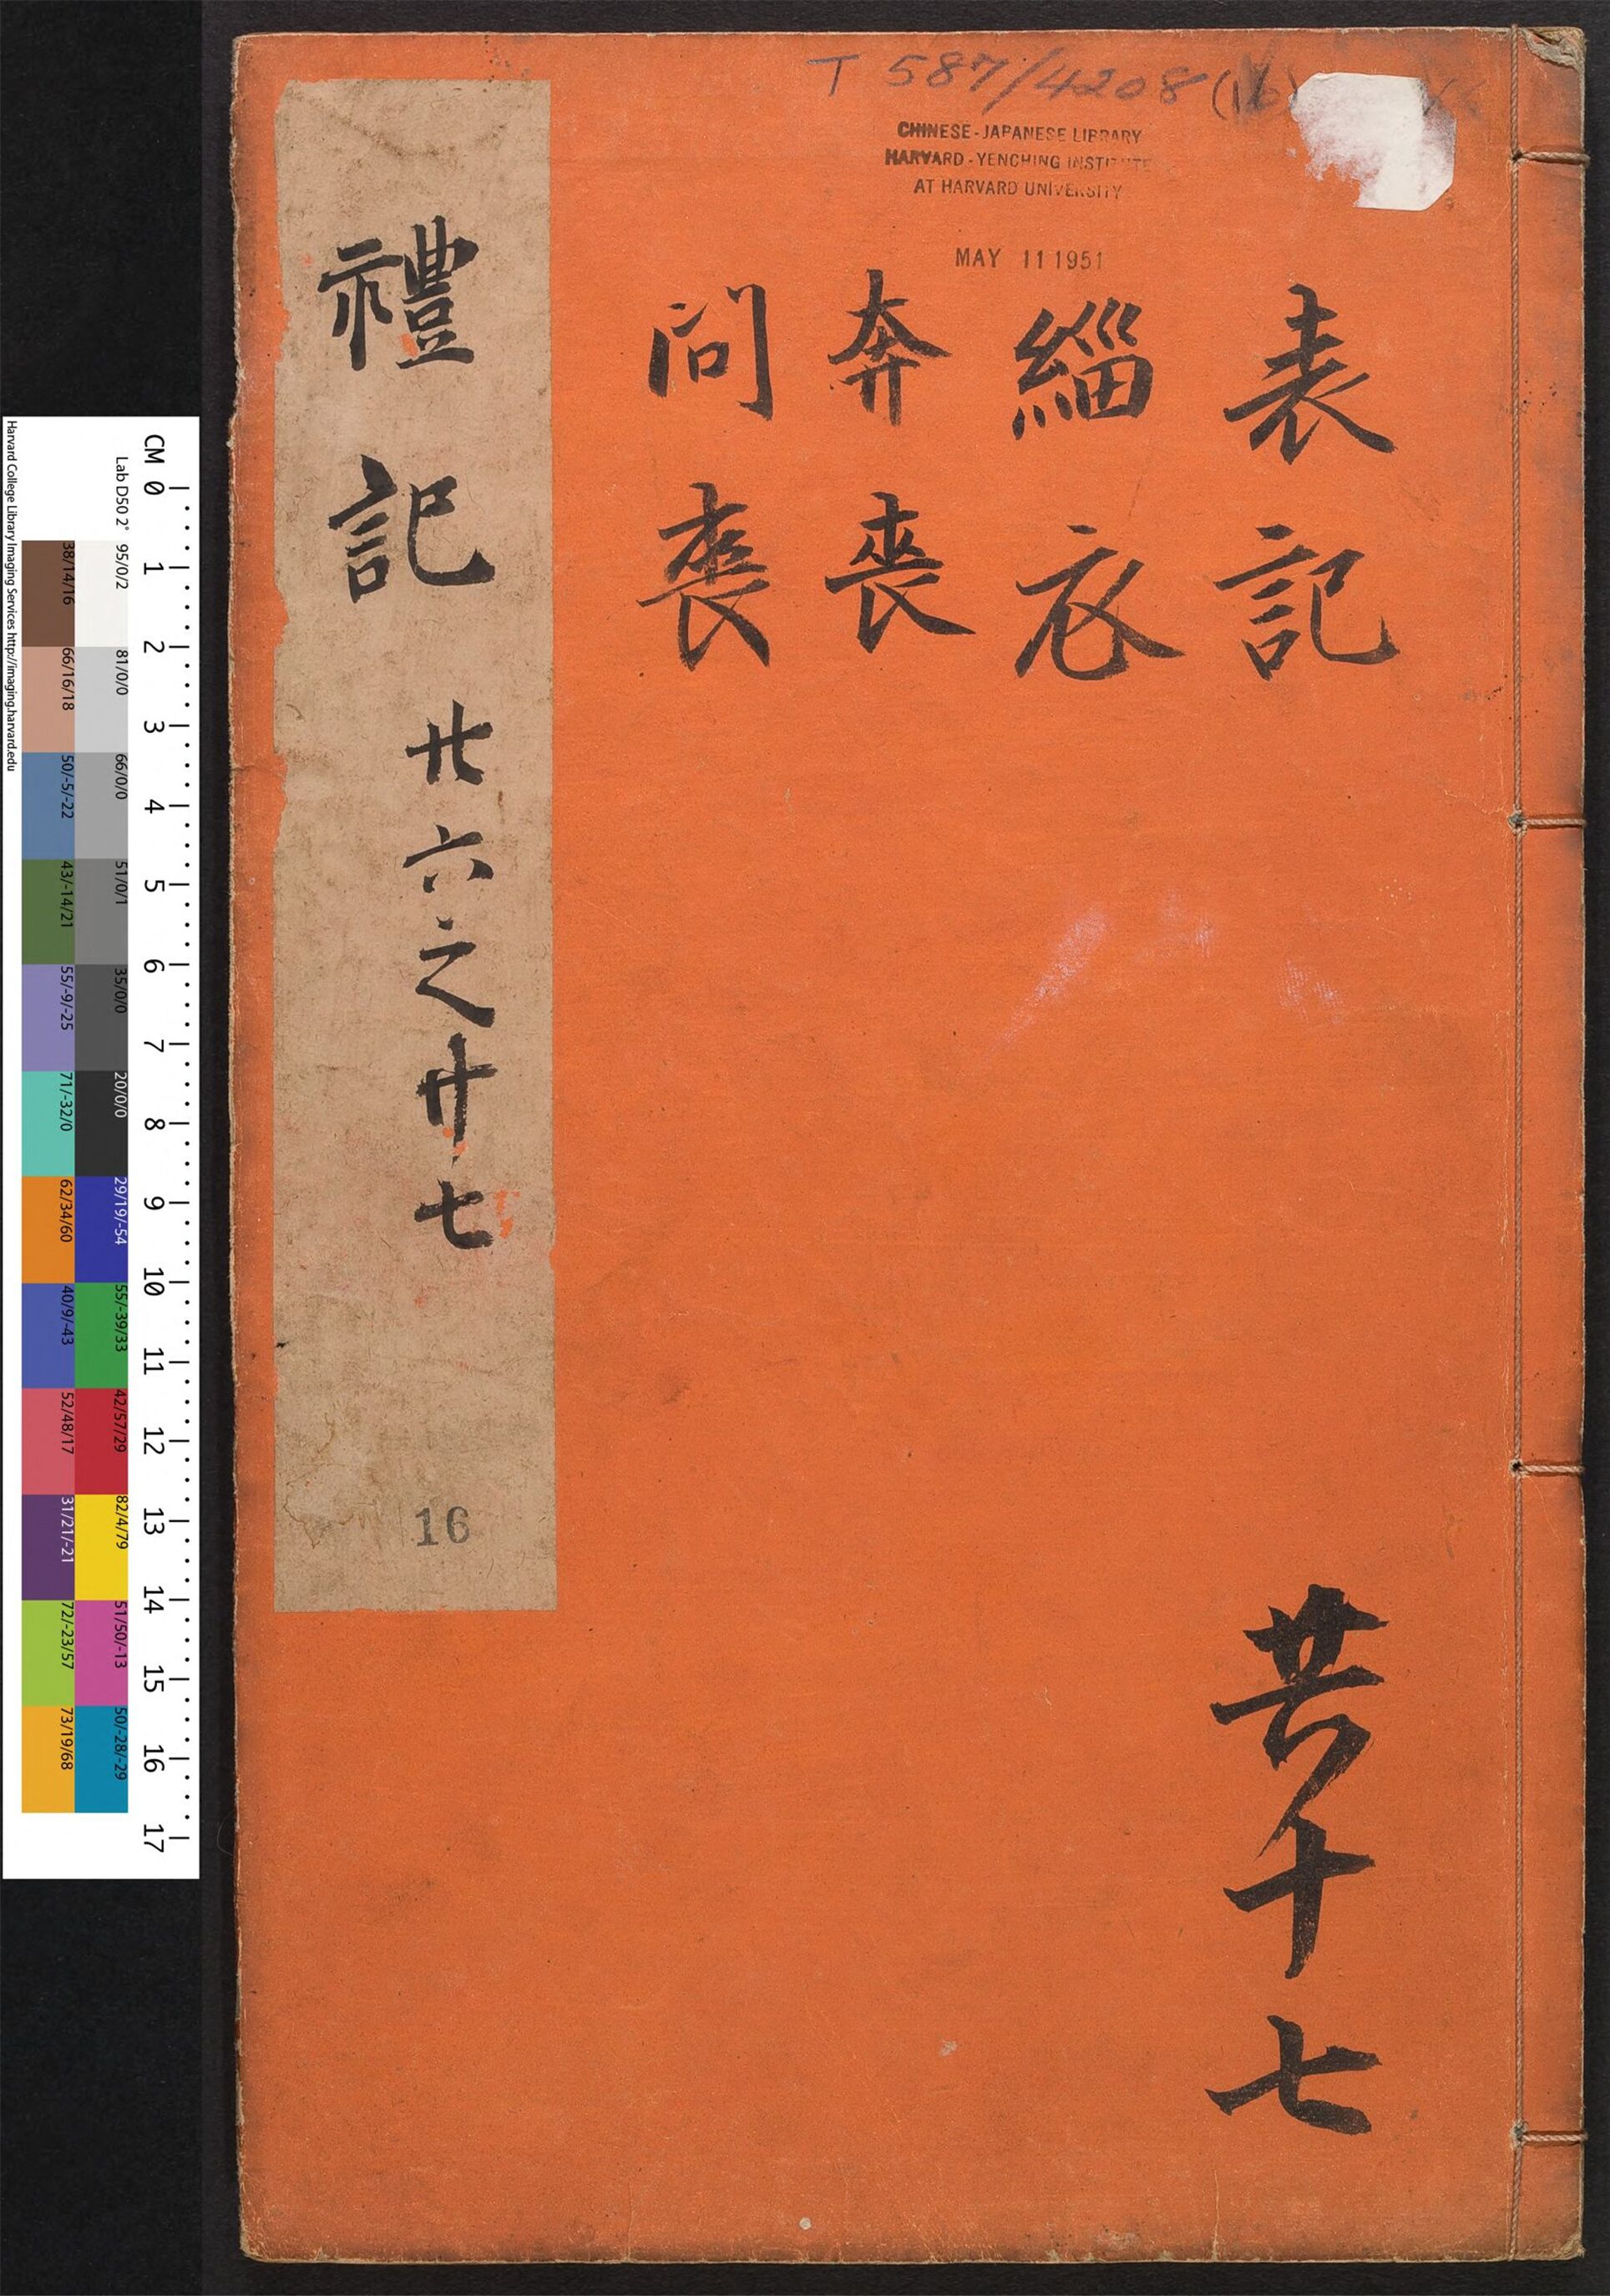 T 587/4208 (16)
CHINESE-JAPANESE LIBRARY
HARVARD-YENCHING INSTITUTE
AT HARVARD UNIVERSITY
MAY 11 1951
表記
緇衣
奔喪
問喪
共十七
禮記 廿六之廿七
16
CM 0 1 2 3 4 5 6 7 8 9 10 11 12 13 14 15 16 17
Lab D50 2° 95/0/2 81/0/0 66/0/0 51/0/1 35/0/0 20/0/0 29/19/-54 55/-39/33 42/57/29 82/4/79 51/50/-13 50/-28/-29
38/14/16 66/16/18 50/-5/-22 43/-14/21 55/-9/-25 71/-32/0 62/34/60 40/9/-43 52/48/17 31/21/-21 72/-23/57 73/19/68
Harvard College Library Imaging Services http://imaging.harvard.edu